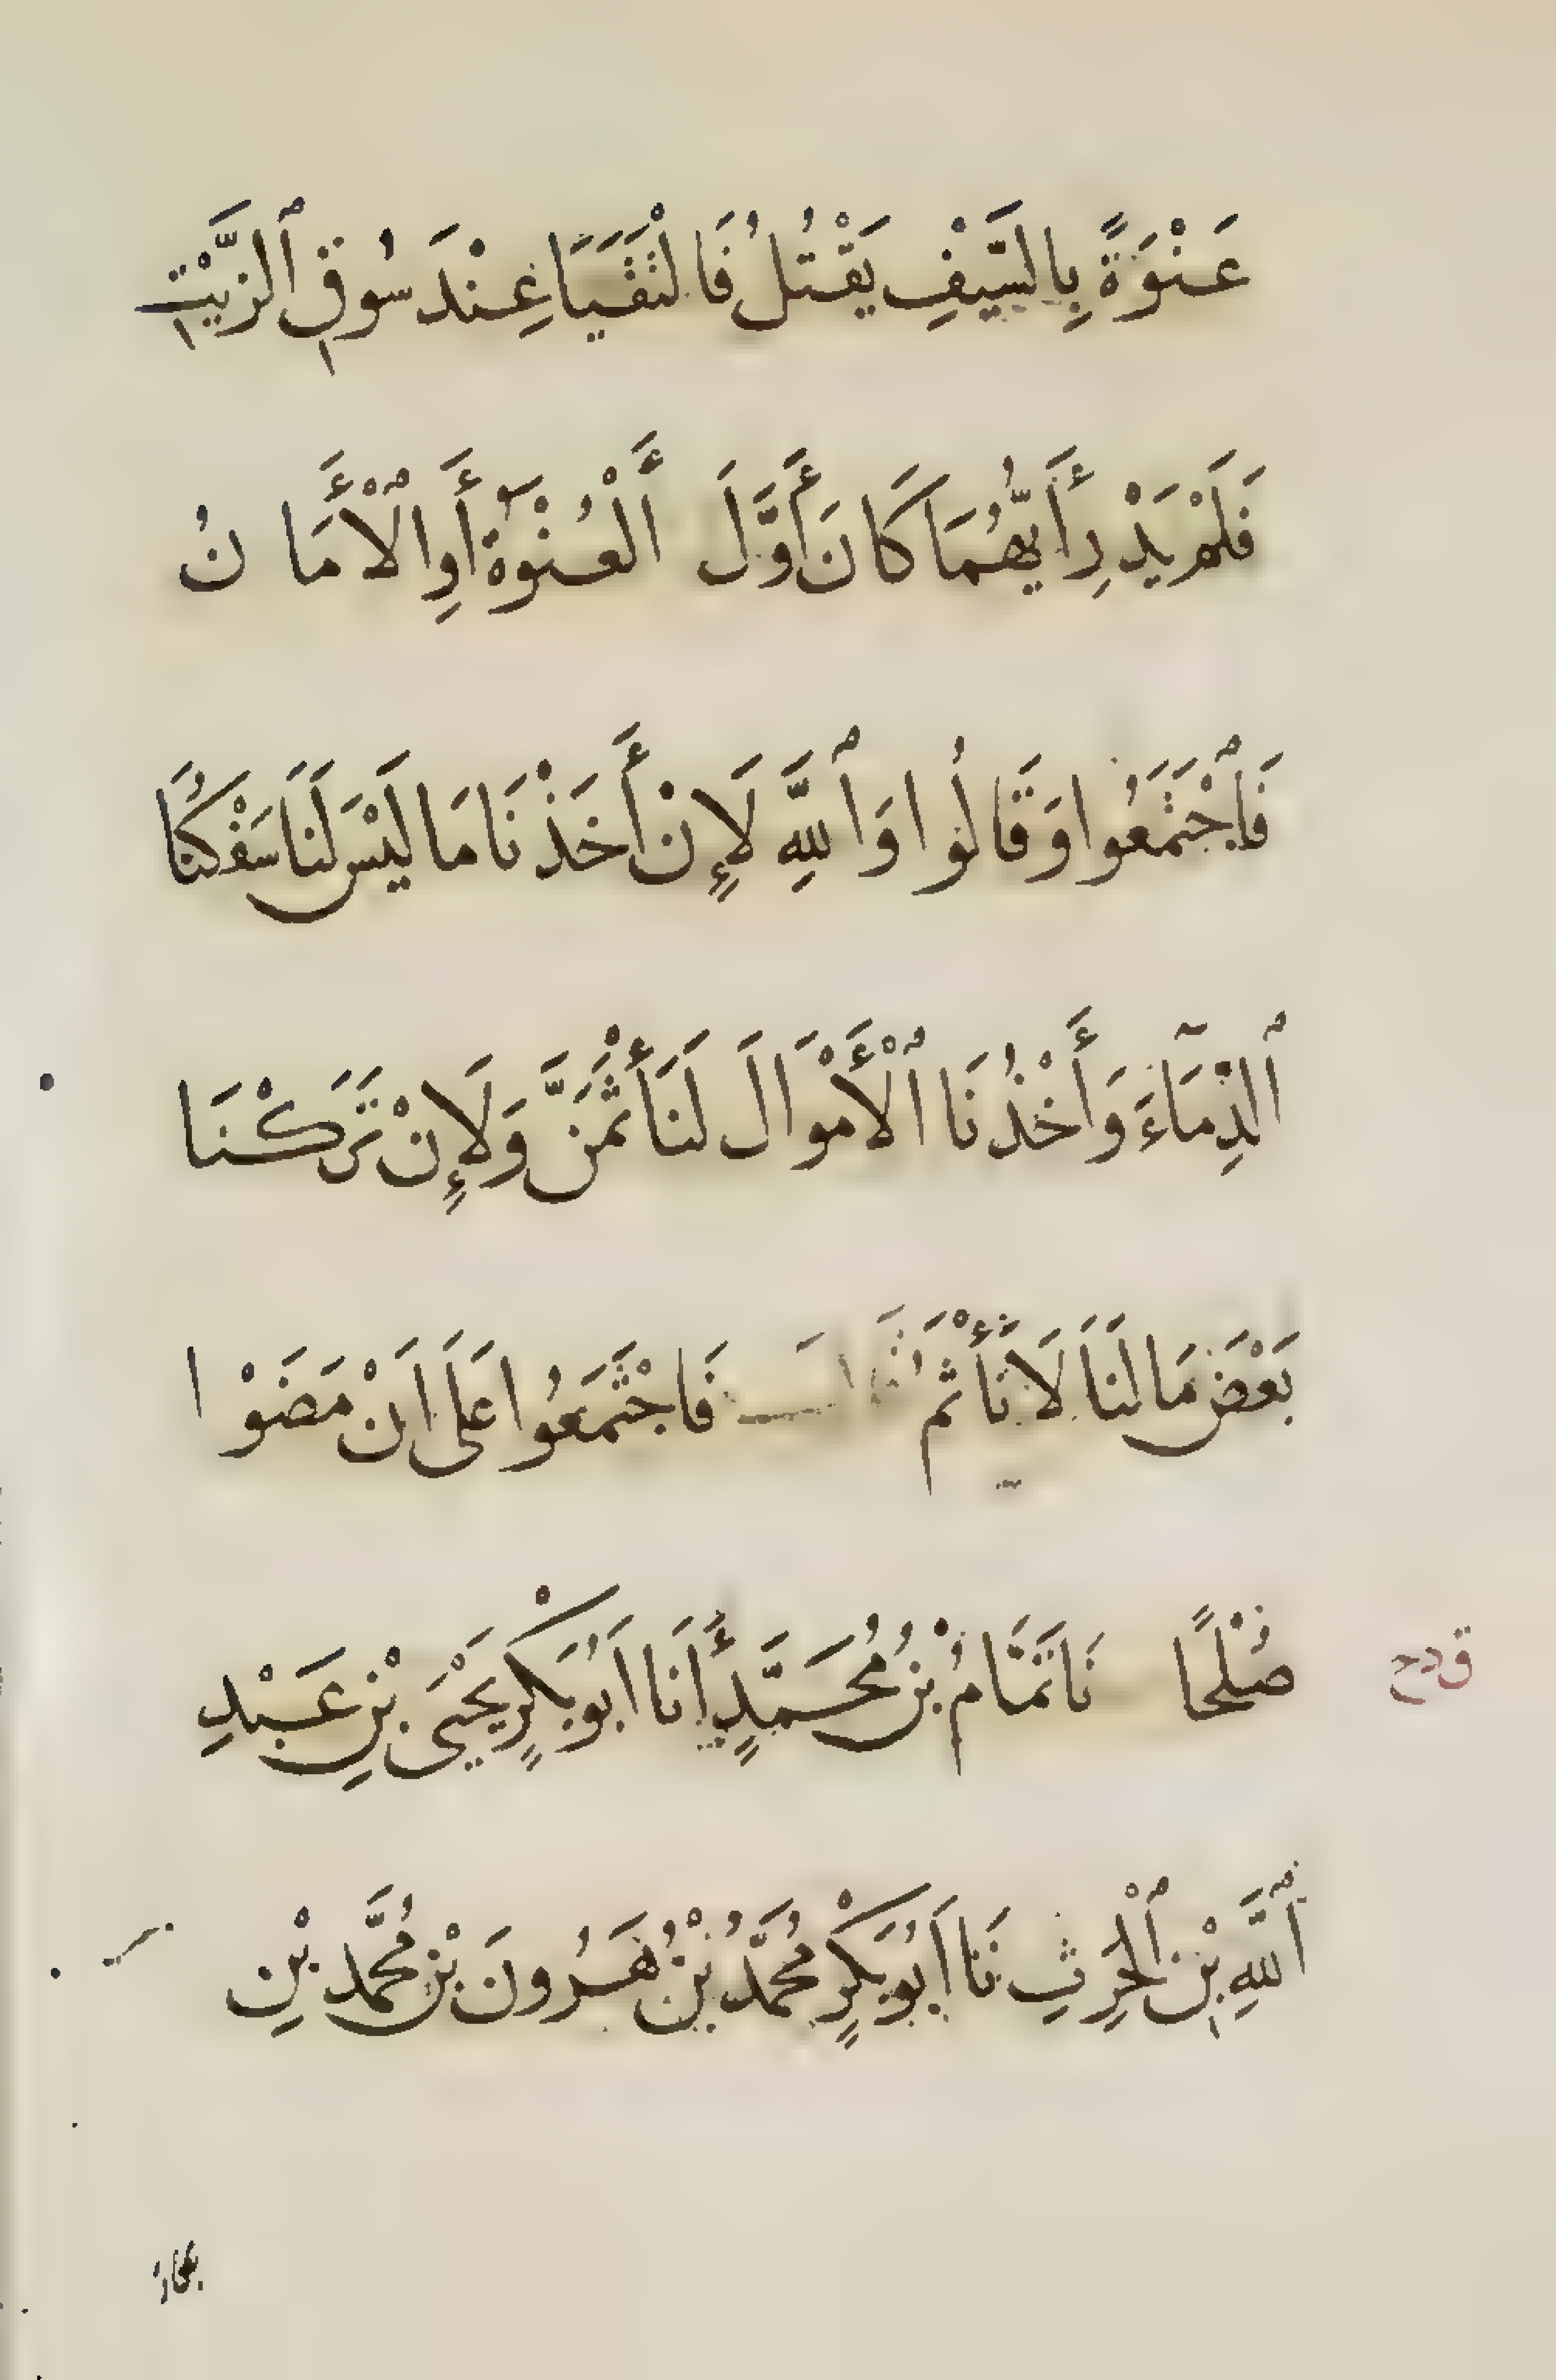 عَنْوَةً بِالسَّيْفِ يَقْتُلُ فَالْتَقَيَا عِنْدَ سُوقِ ٱلزَّيْتِ
فَلَمْ يَدْرِ أَيُّهُمَا كَانَ أَوَّلَ أَلْعُنْوَةُ أَوِ ٱلْأَمَانُ
فَٱجْتَمَعُوا وَقَالُوا وَٱللَّهِ لَإِنْ أَخَذْنَا مَا لَيْسَ لَنَا سَفَكْنَا
ٱلدِّمَآءَ وَأَخْذُنَا ٱلْأَمْوَالَ لَنَأْثَمَنَّ وَلَإِنْ تَرَكْنَا
بَعْضَ مَا لَنَا لَا نَأْثَمُ فَاجْتَمَعُوا عَلَى اَنْ مَضَوْا
صُلْحًا نَا تَمَّامُ بْنُ مُحَمَّدٍ أَنَا اَبُو بَكْرٍ يَحْيَى بْنِ عَبْدِ
ق دح
ٱللَّهِ بْنِ ٱلْحَرِثِ نَا اَبُو بَكْرٍ مُحَمَّدُ بْنُ هَرُونَ بْنِ مُحَمَّدِ بْنِ
بكار